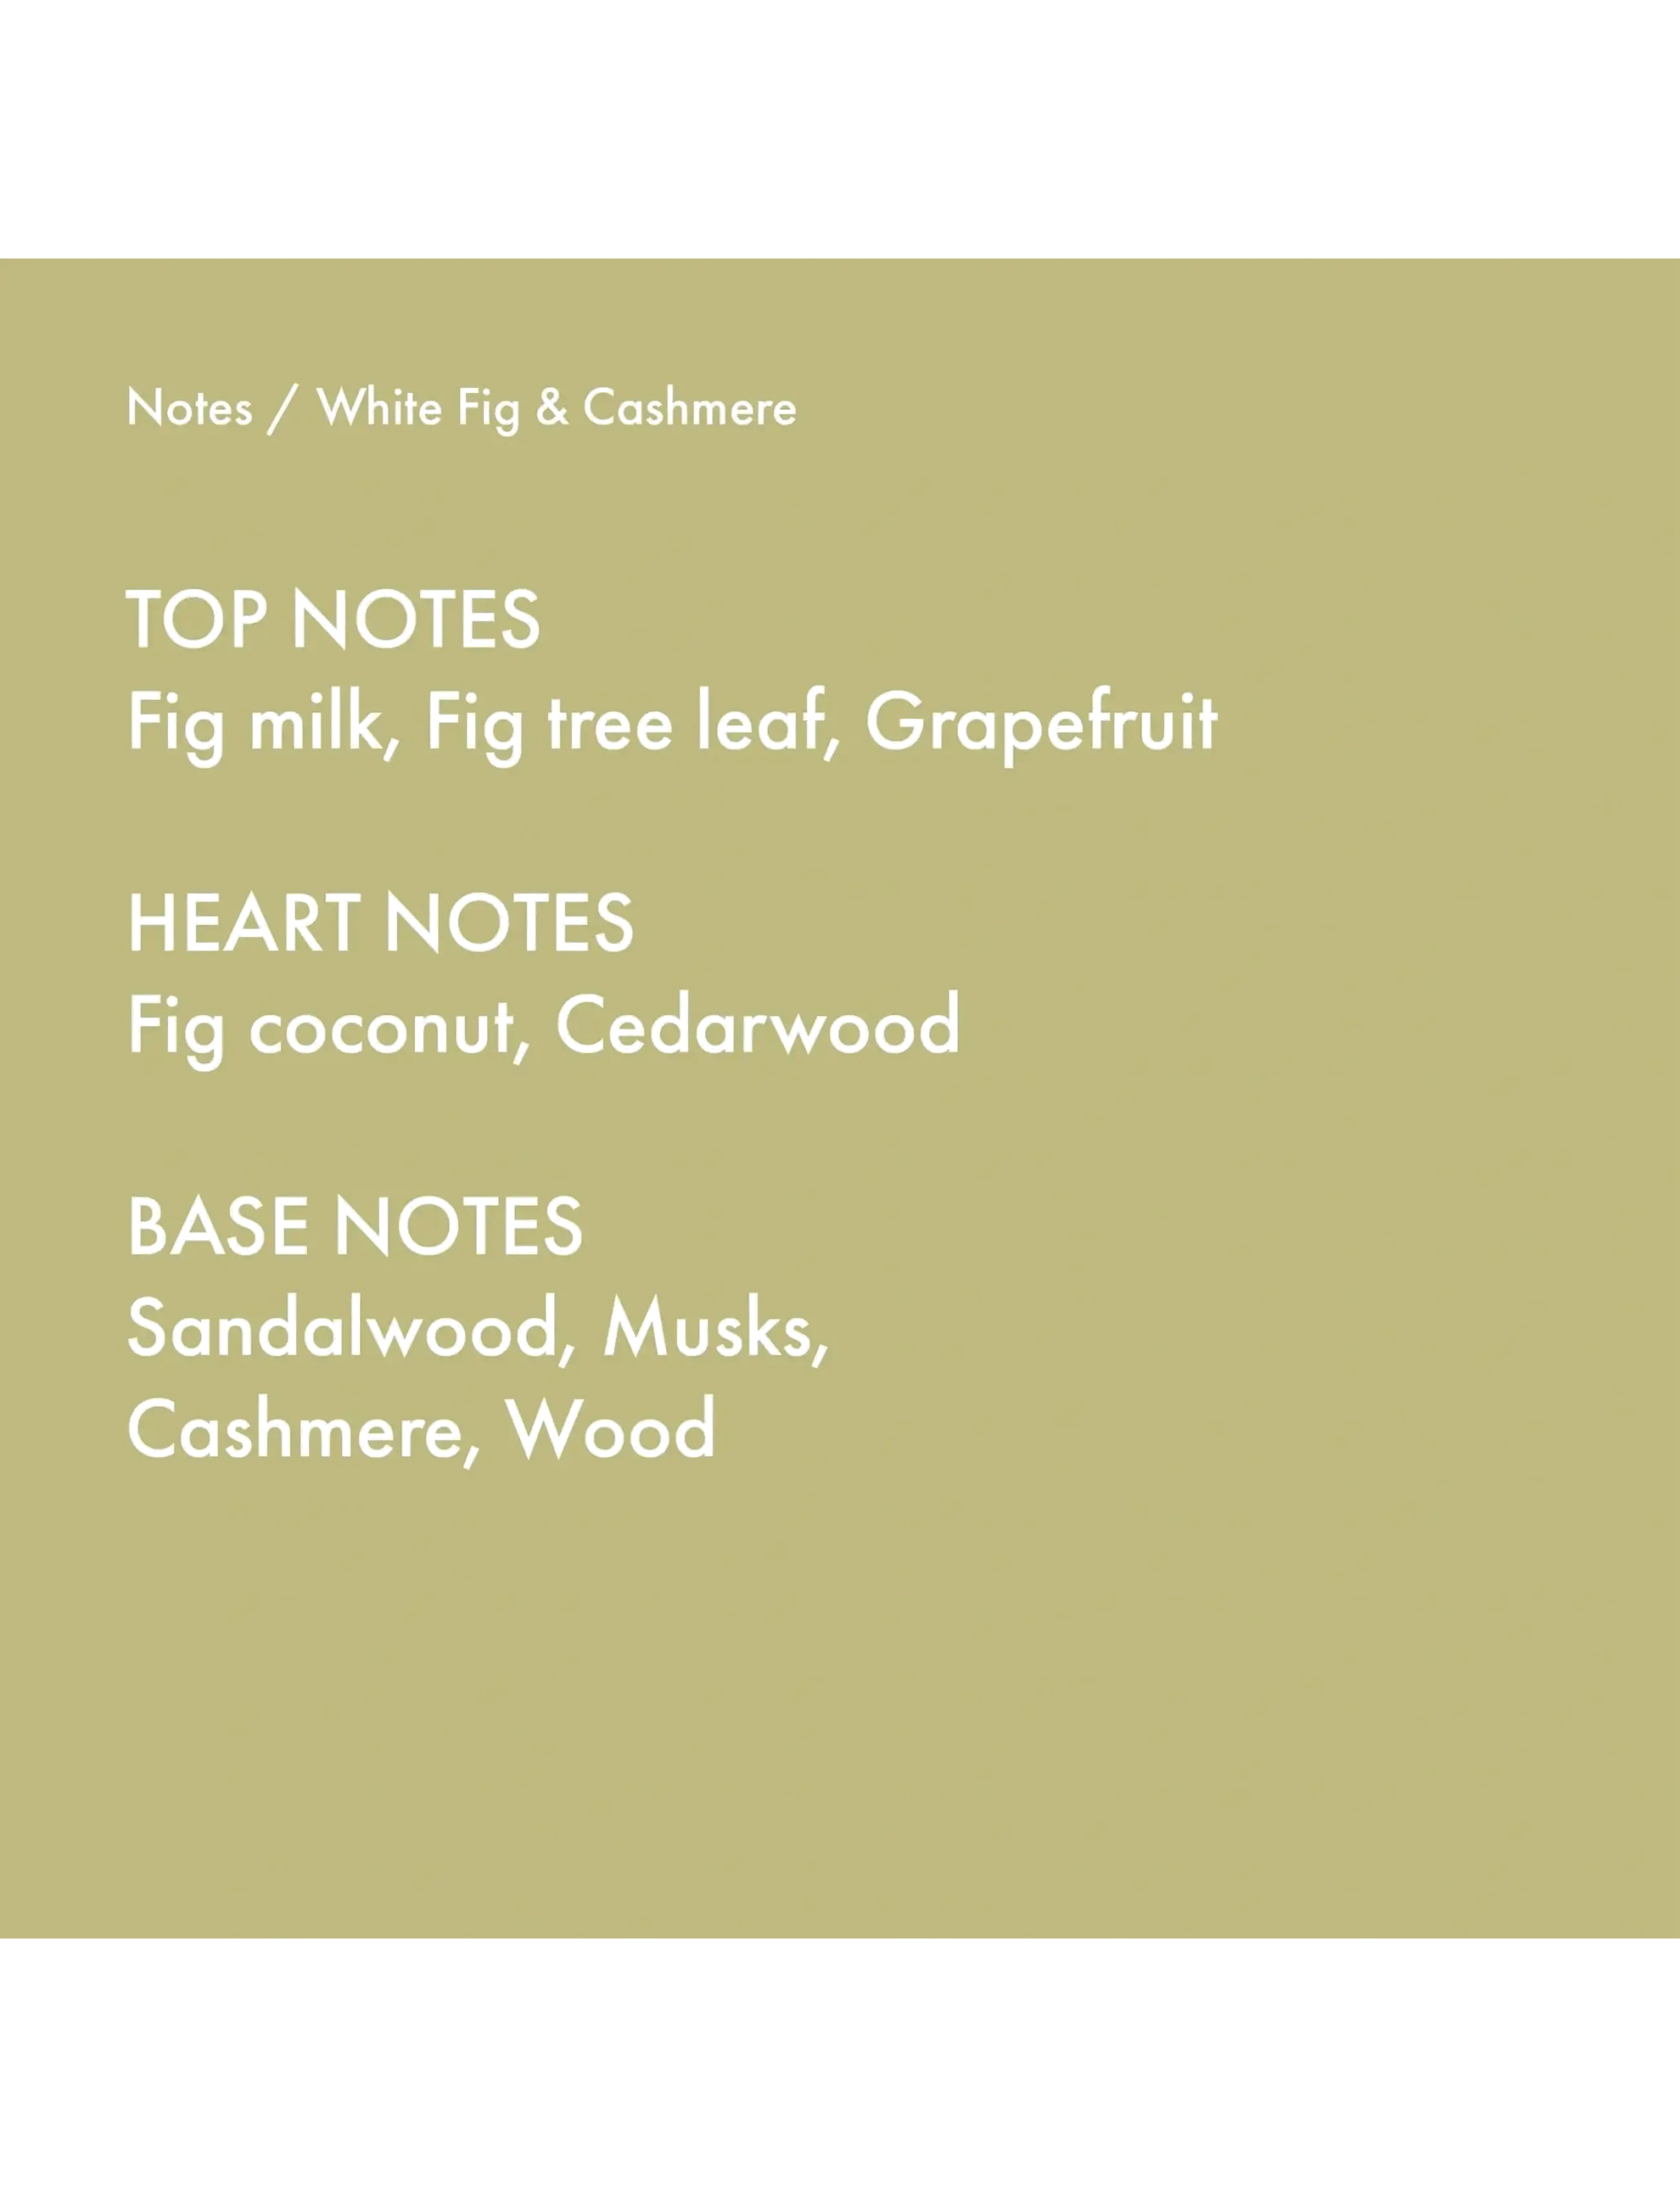 Notes / White Fig & Cashmere
TOP NOTES
Fig milk, Fig tree leaf, Grapefruit
HEART NOTES
Fig coconut, Cedarwood
BASE NOTES
Sandalwood, Musks,
Cashmere, Wood